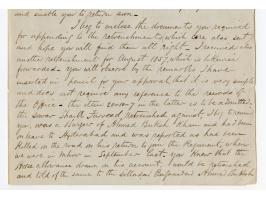 and enable you to return soon.
I beg to enclose the documents you required
for appending to the Retrenchments, which were also sent
and hope you will find them all right. I received also
another retrenchment for August 1857, which is herewith
forwarded. You will observe by the remarks I have
inserted in pencil for your approval that it is very simple
and does not require any reference to the records of
the Office - the item in the latter is to be admitted.
the Sowar Shaik retrenched against I beg to remind
you, was a Bargeer of Ahmed Buksh Khan and had been
on leave to Hyderabad and was reported as had been
killed on the road on his return to join the Regiment, when
we were in in September last, you know that the
those allowance drawn in his account, would be retrenched
and told of the same to the Ahmed Buksh